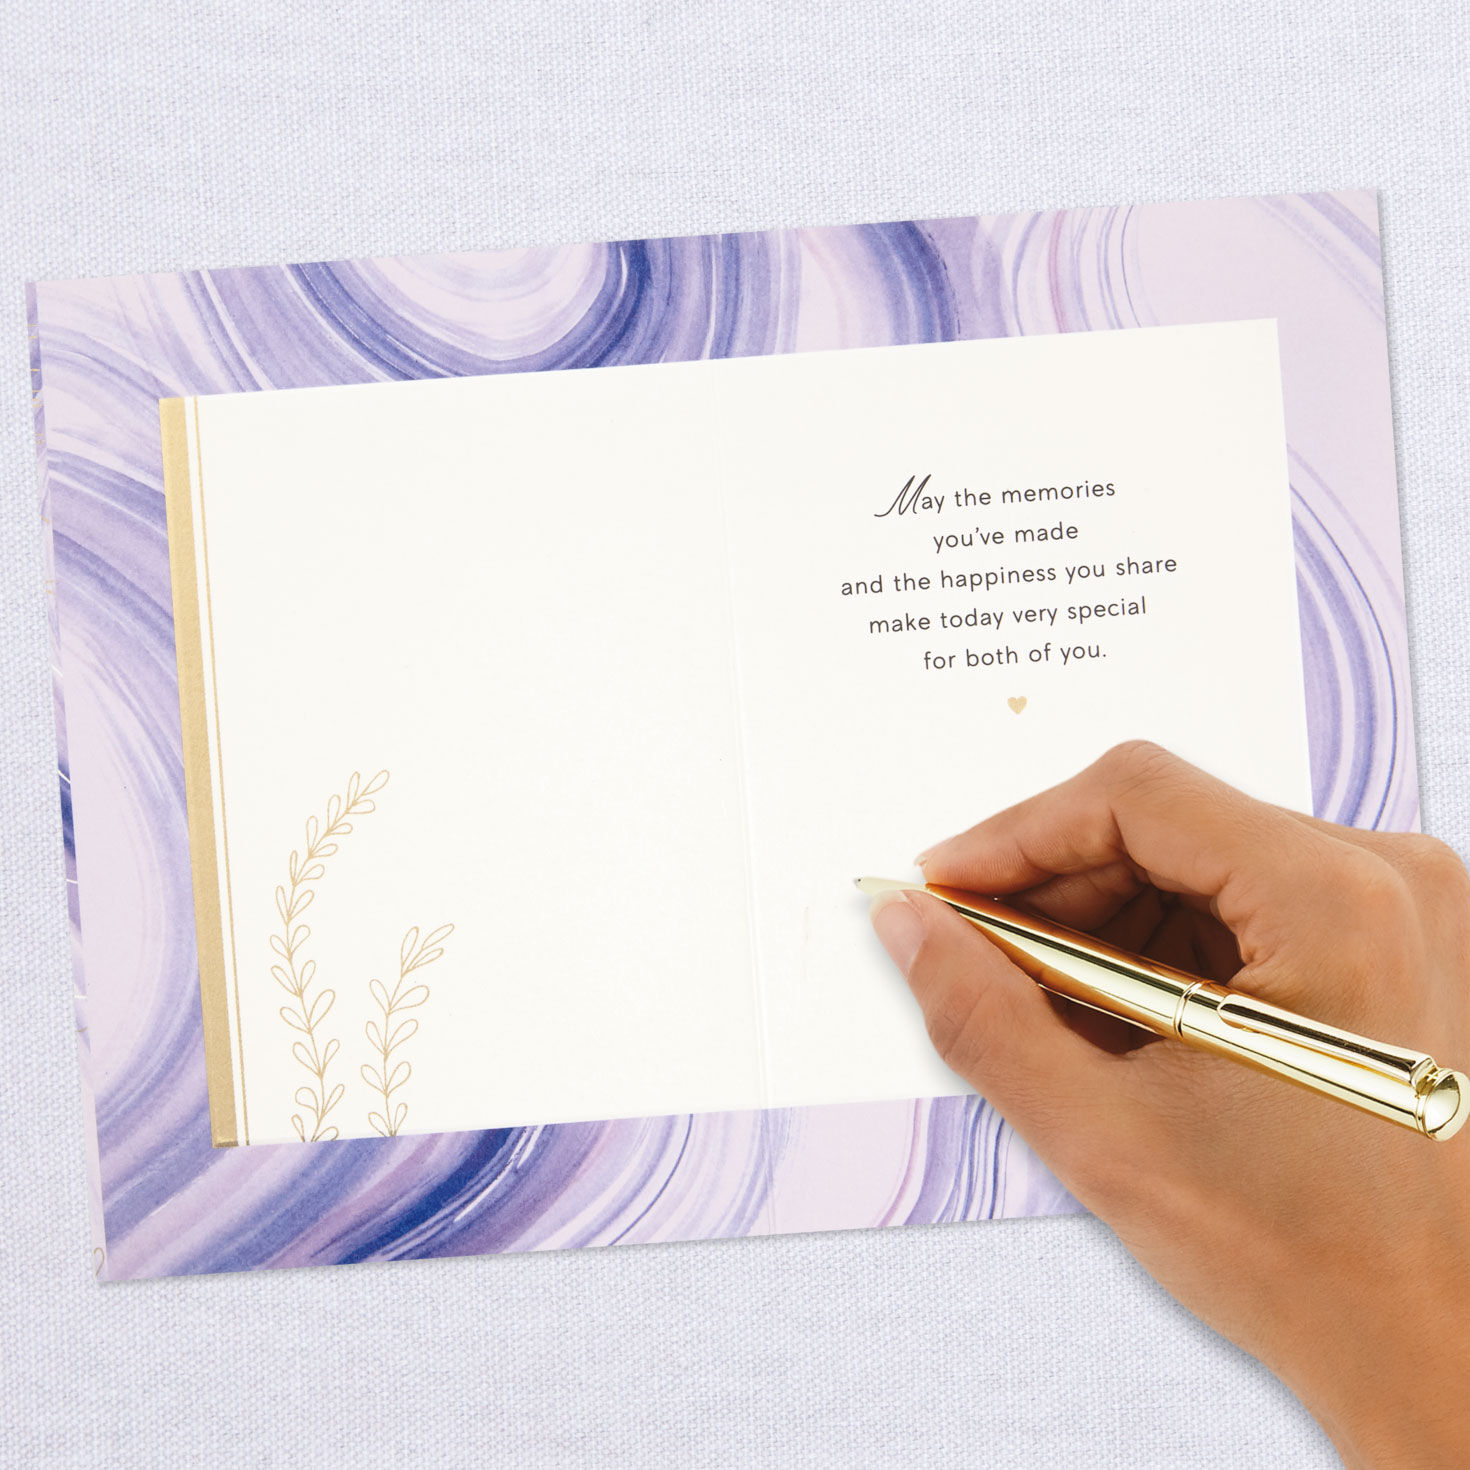 May the memories
you’ve made
and the happiness you share
make today very special
for both of you.